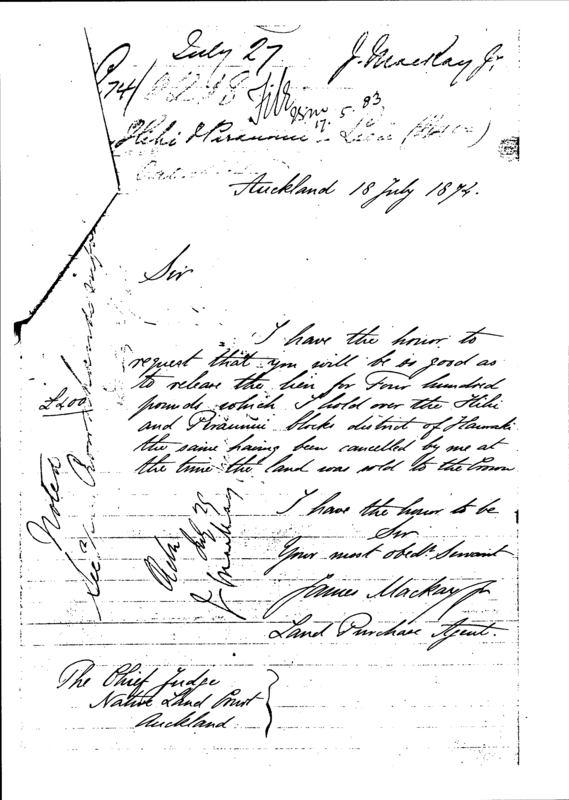 July 27
J. Mackay Jr.
74/
File
17. 5. 83
Hihi & Piraunui Lien
Auckland 18 July 1874.
Sir
I have the honor to
request that you will be so good as
to release the lien for Four hundred
pounds which I hold over the Hihi
and Piraunui blocks district of Hauraki
the same having been cancelled by me at
the time the land was sold to the Crown
I have the honor to be
Sir
Your most obedt. Servant
James Mackay Jr
Land Purchase Agent.
The Chief Judge
Native Land Court
Auckland
£400
Noted
July 25
J Mackay